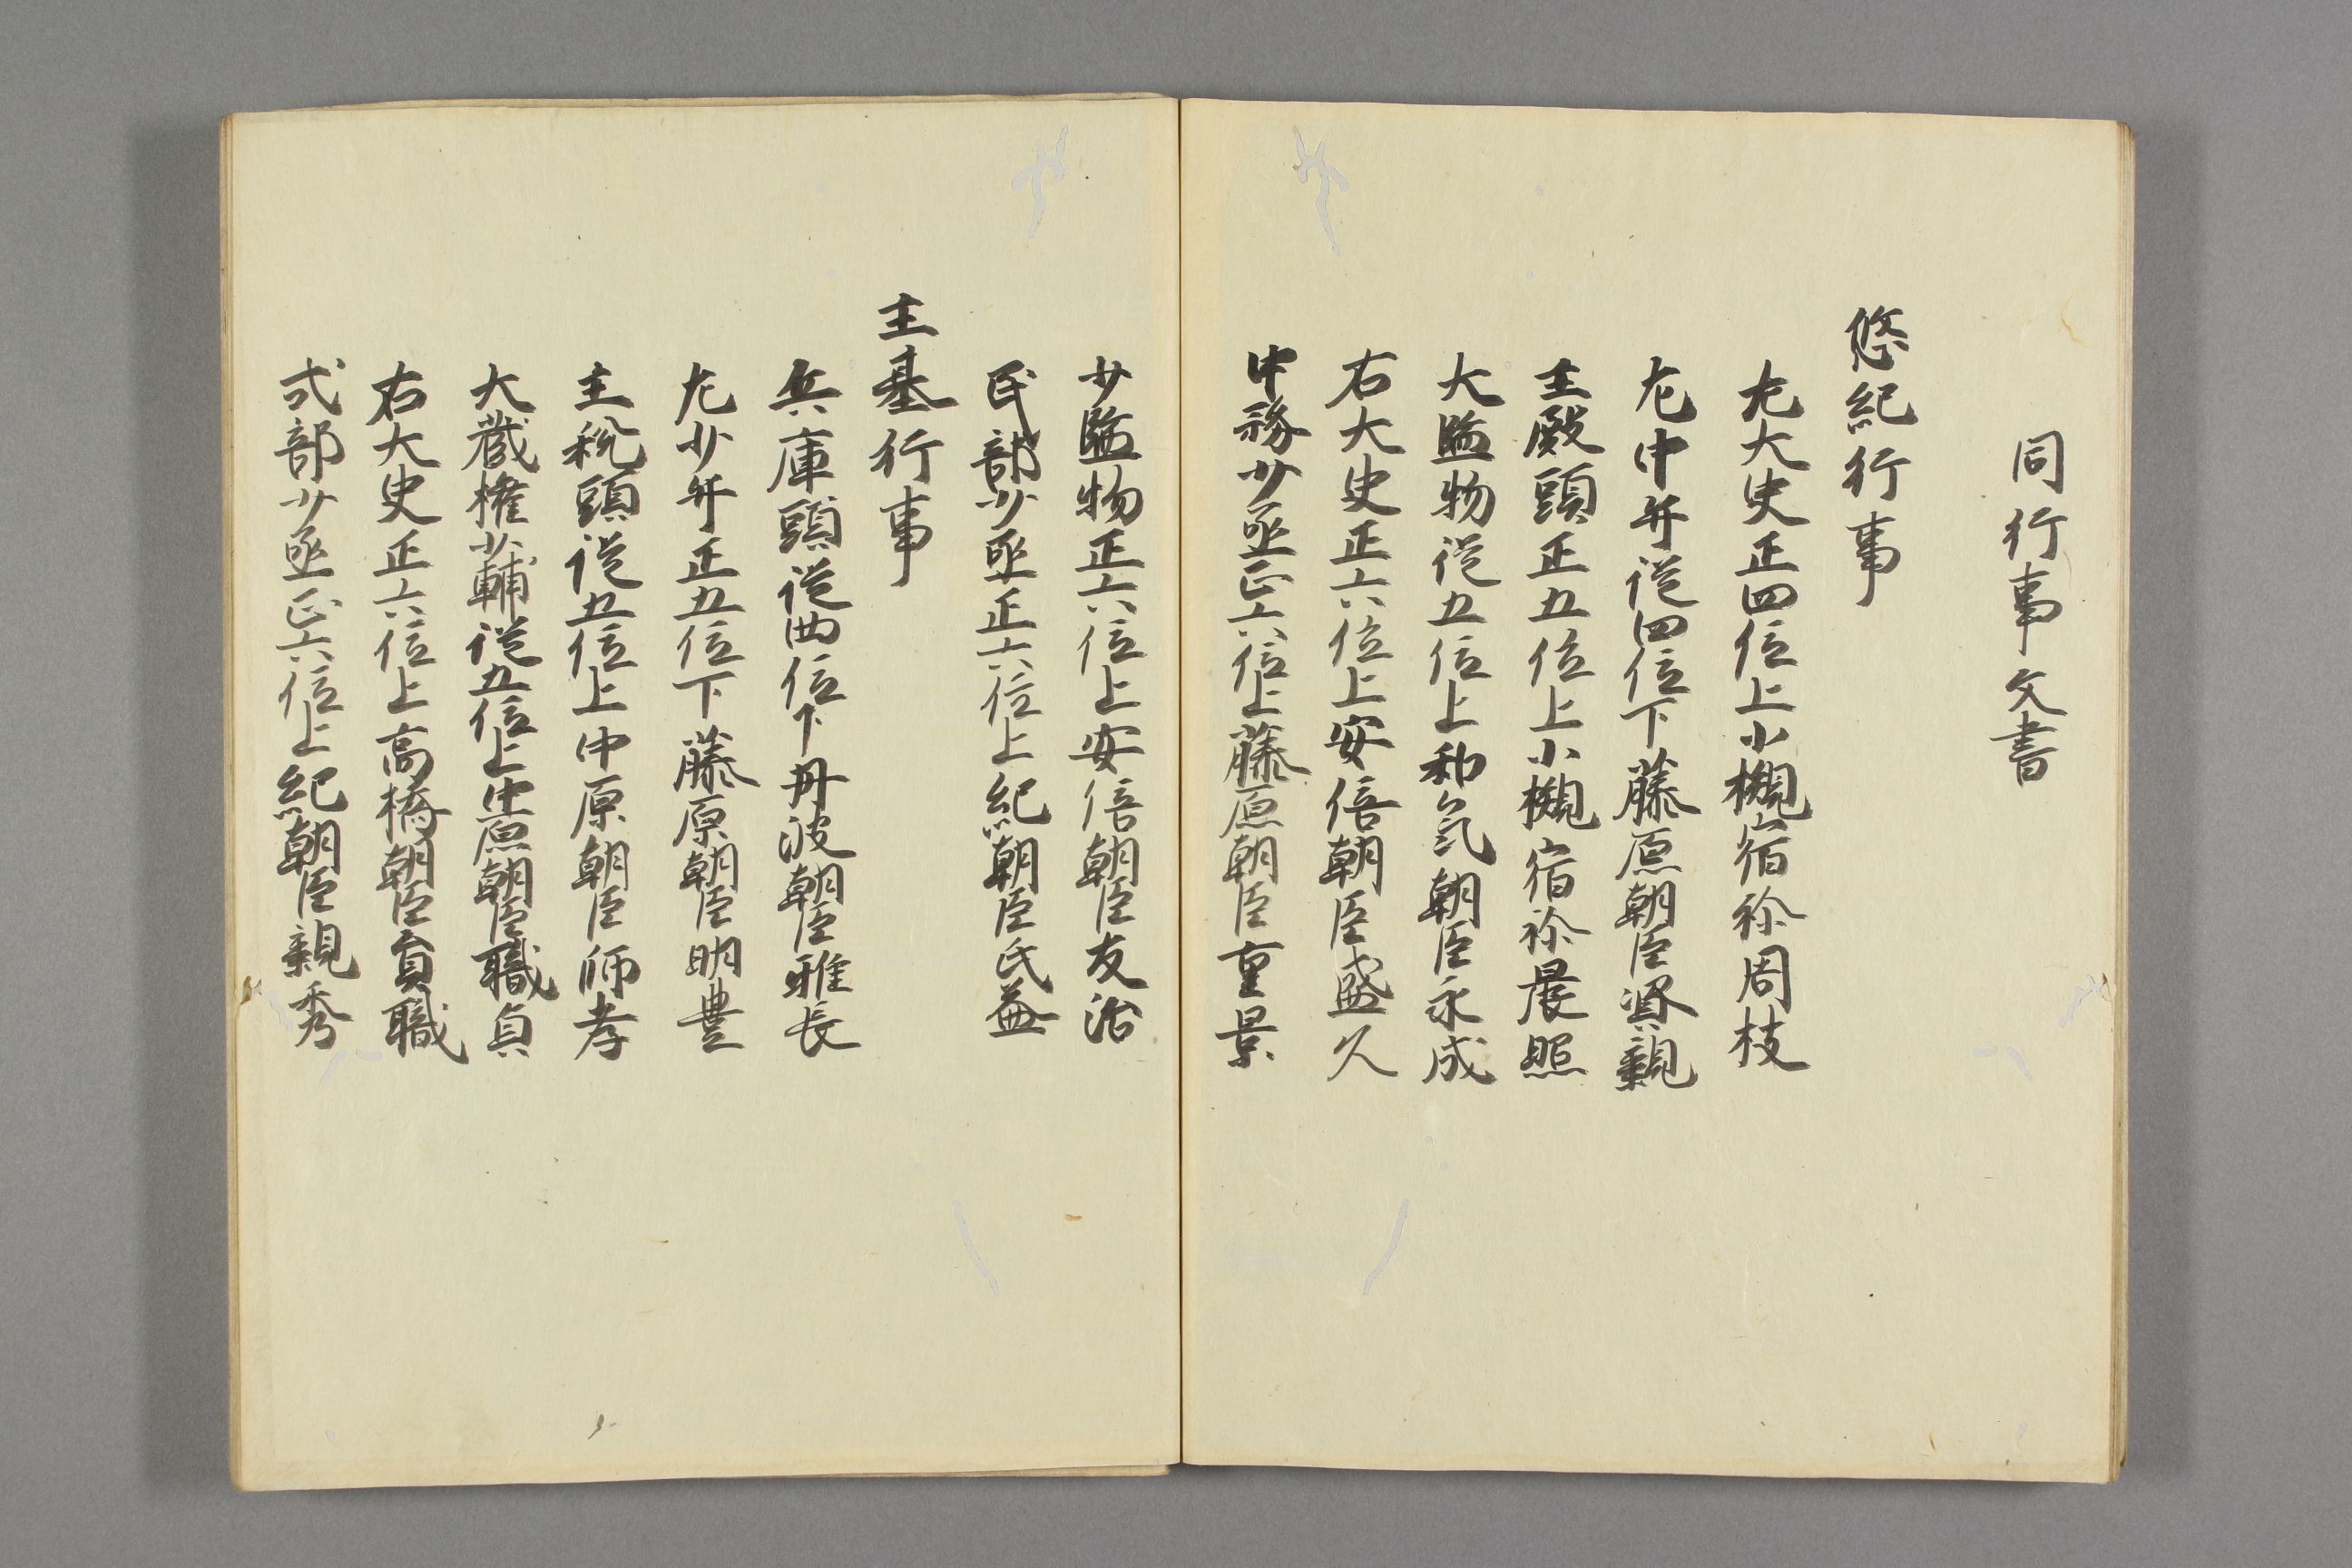 同行事文書
悠紀行事
左大史正四位上小槻宿祢周枝
左中弁従四位下藤原朝臣資親
主殿頭正五位上小槻宿祢晨照
大監物従五位上和気朝臣永成
右大史正六位上安倍朝臣盛久
中務少丞正六位上藤原朝臣重景
少監物正六位上安倍朝臣友治
民部少丞正六位上紀朝臣氏益
主基行事
兵庫頭従四位下丹波朝臣雅長
左少弁正五位下藤原朝臣明豊
主税頭従五位上中原朝臣師孝
大蔵権少輔従五位上中原朝臣職貞
右大史正六位上高橋朝臣員職
式部少丞正六位上紀朝臣親秀